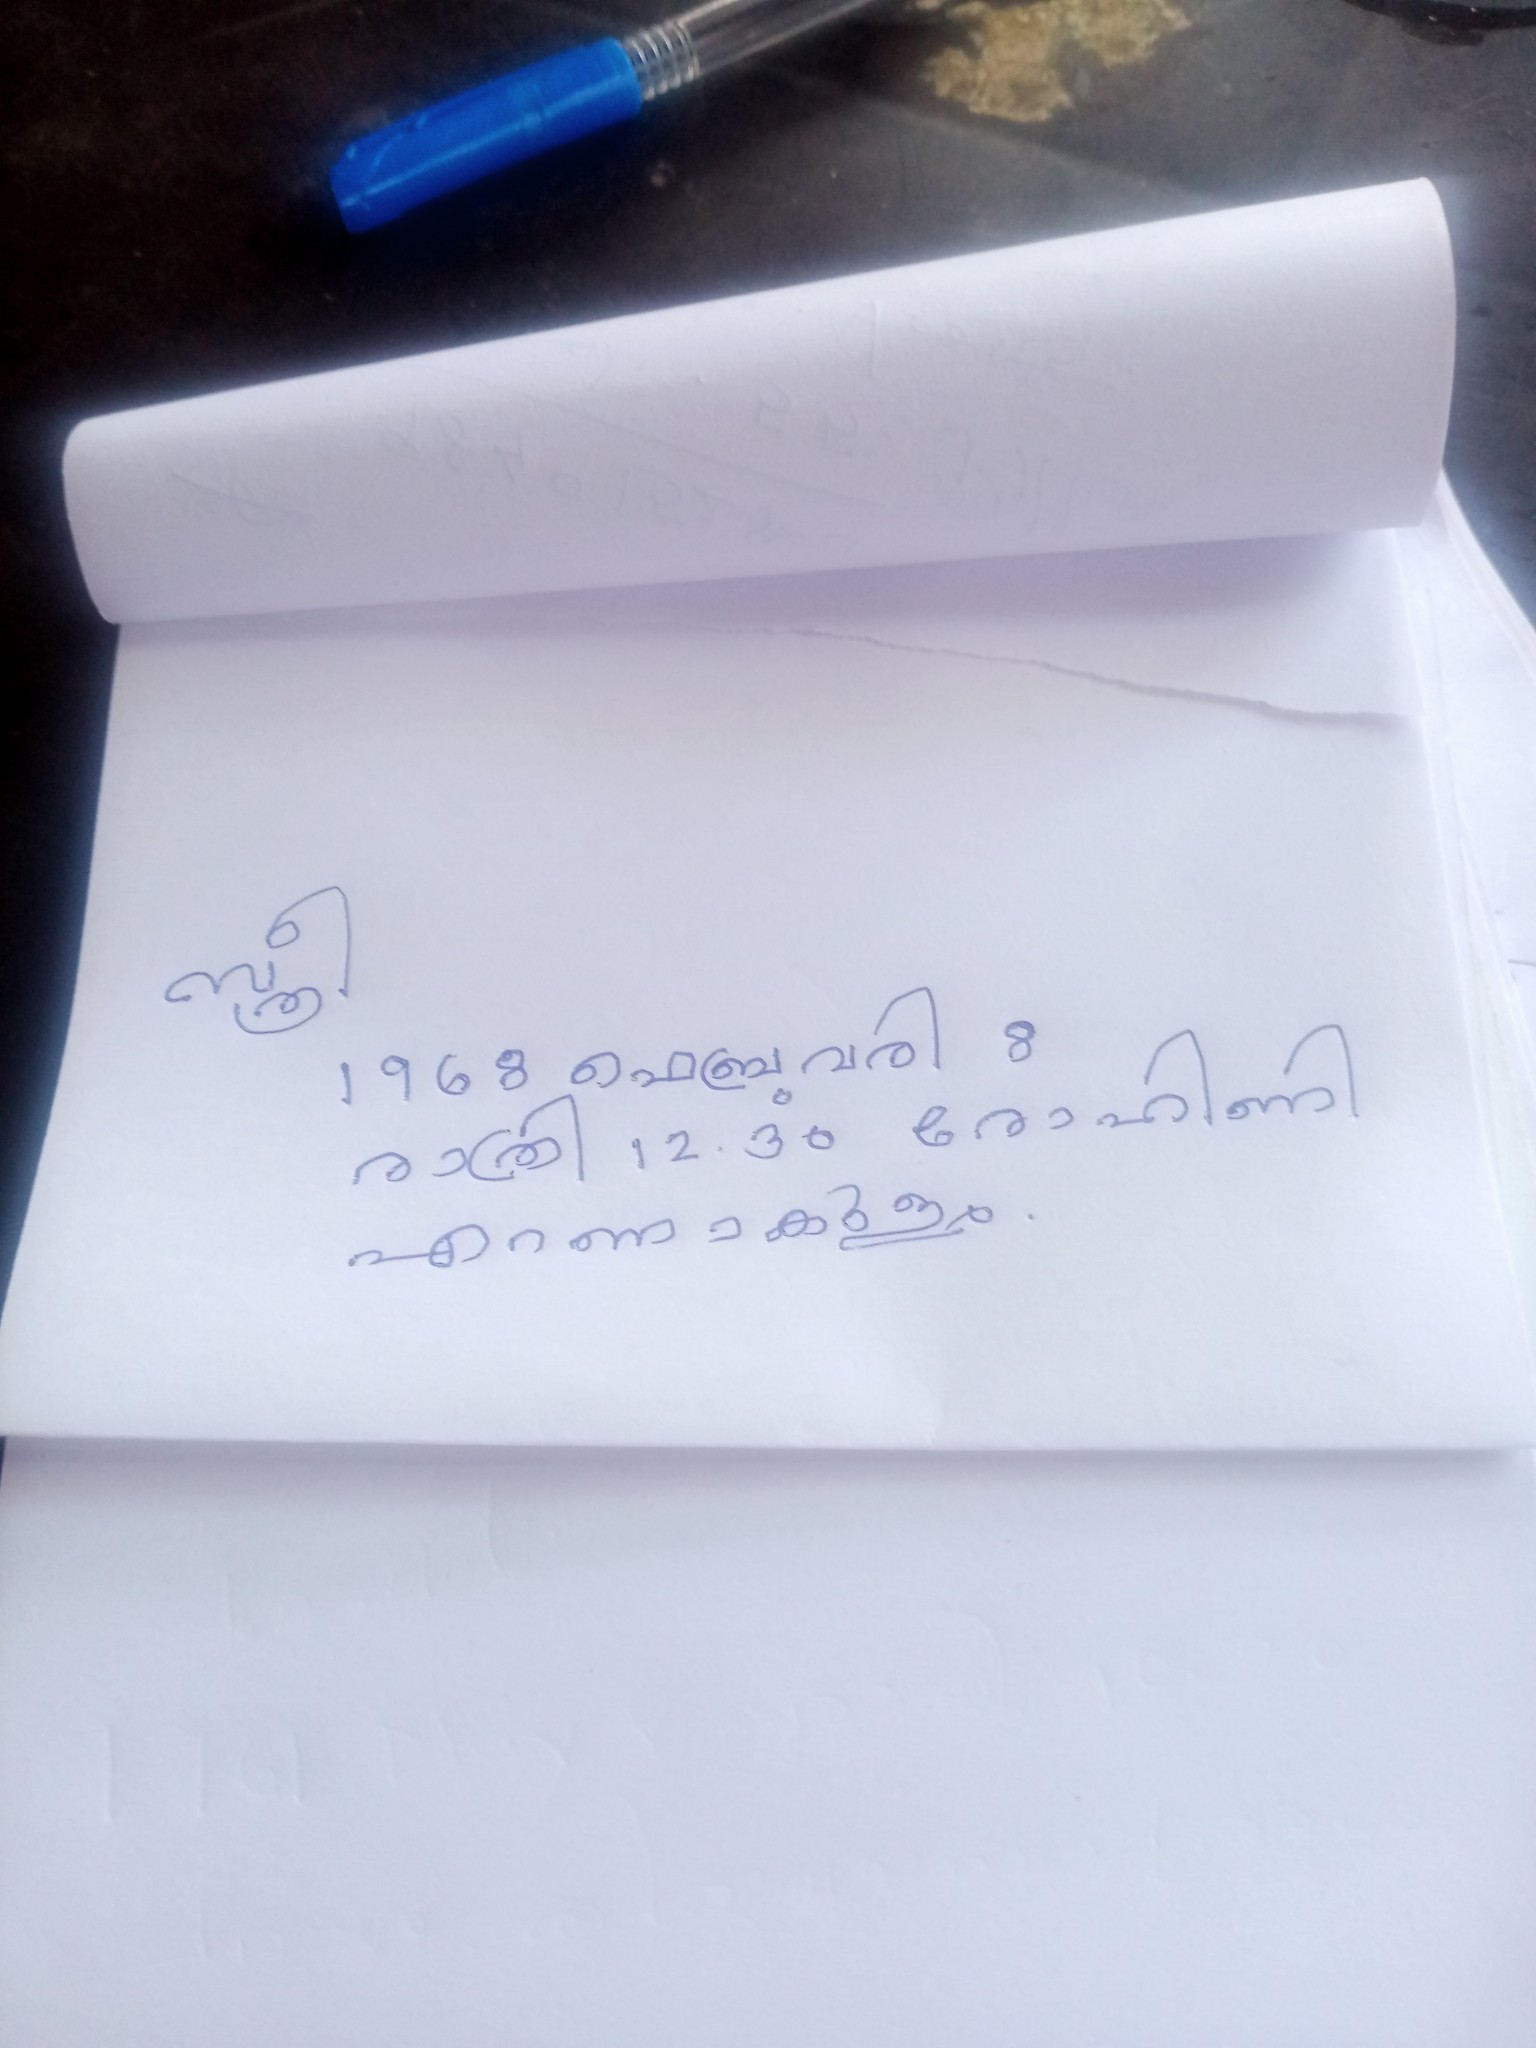 സ്ത്രീ
1968 ഫെബ്രുവരി 8
രാത്രി 12.30 രോഹിണി
എറണാകുളം.